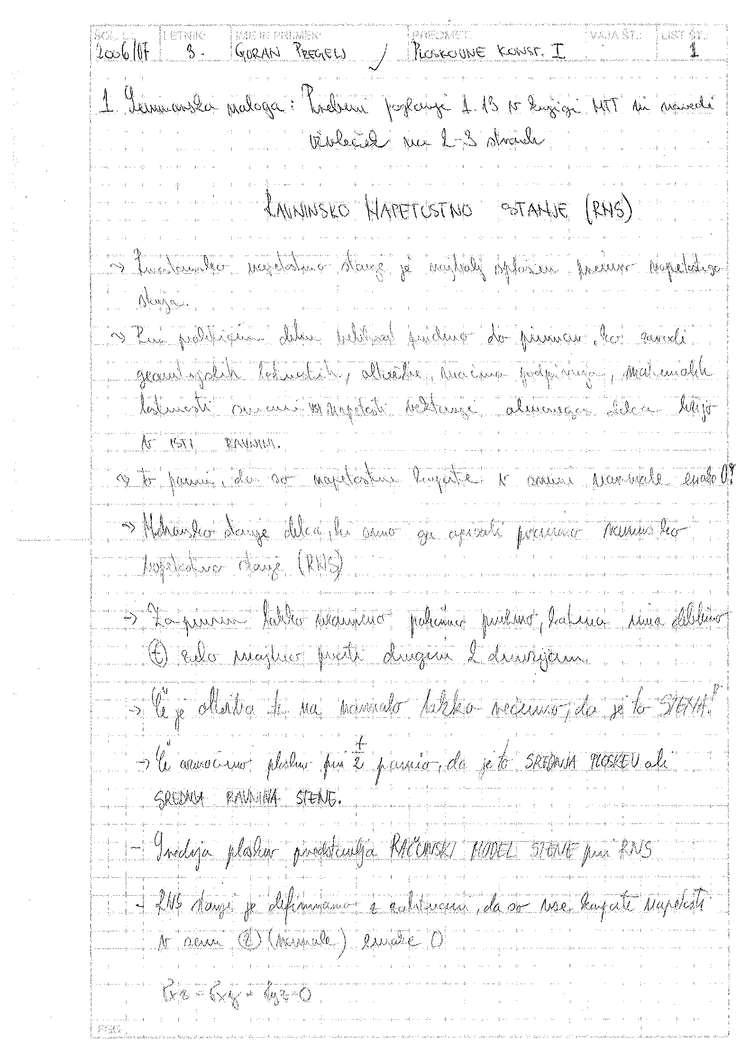 ŠOL. L.: LETNIK: IME IN PRIIMEK: PREDMET: VAJA ŠT.: LIST ŠT.:
2006/07 3. GORAN PREGELJ PLOSKOVNE KONST. I 1
1. Seminarska naloga: Preberi poglavje 1.13 v knjigi MTT in navedi
izvleček na 2-3 straneh
RAVNINSKO NAPETOSTNO STANJE (RNS)
napetostno stanje je najbolj splošen primer napetostnega
stanja.
Pri praktičnem delu velikokrat pridemo do primerov, ko zaradi
geometrijskih lastnosti, obtežbe, načina podpiranja, materialnih
lastnosti napetosti delca ležijo
v ISTI RAVNINI.
to pomeni, da so napetostne komponente v smeri normale enake 0!
stanje delca, ki smo ga opisali ravninsko
napetostno stanje (RNS)
Za primer lahko vzamemo ploščo, katera ima debelino
t zelo majhno proti drugim 2 dimenzijam.
Če je obtežba na lahko rečemo, da je to STENA!
Če označimo ploskev pri t/2 pomeni, da je to SREDNJA PLOSKEV ali
SREDNJA RAVNINA STENE.
- Srednja ploskev predstavlja RAČUNSKI MODEL STENE pri RNS
- RNS stanje je definirano z zahtevami, da so vse napetosti
v smeri z (normale) enake 0